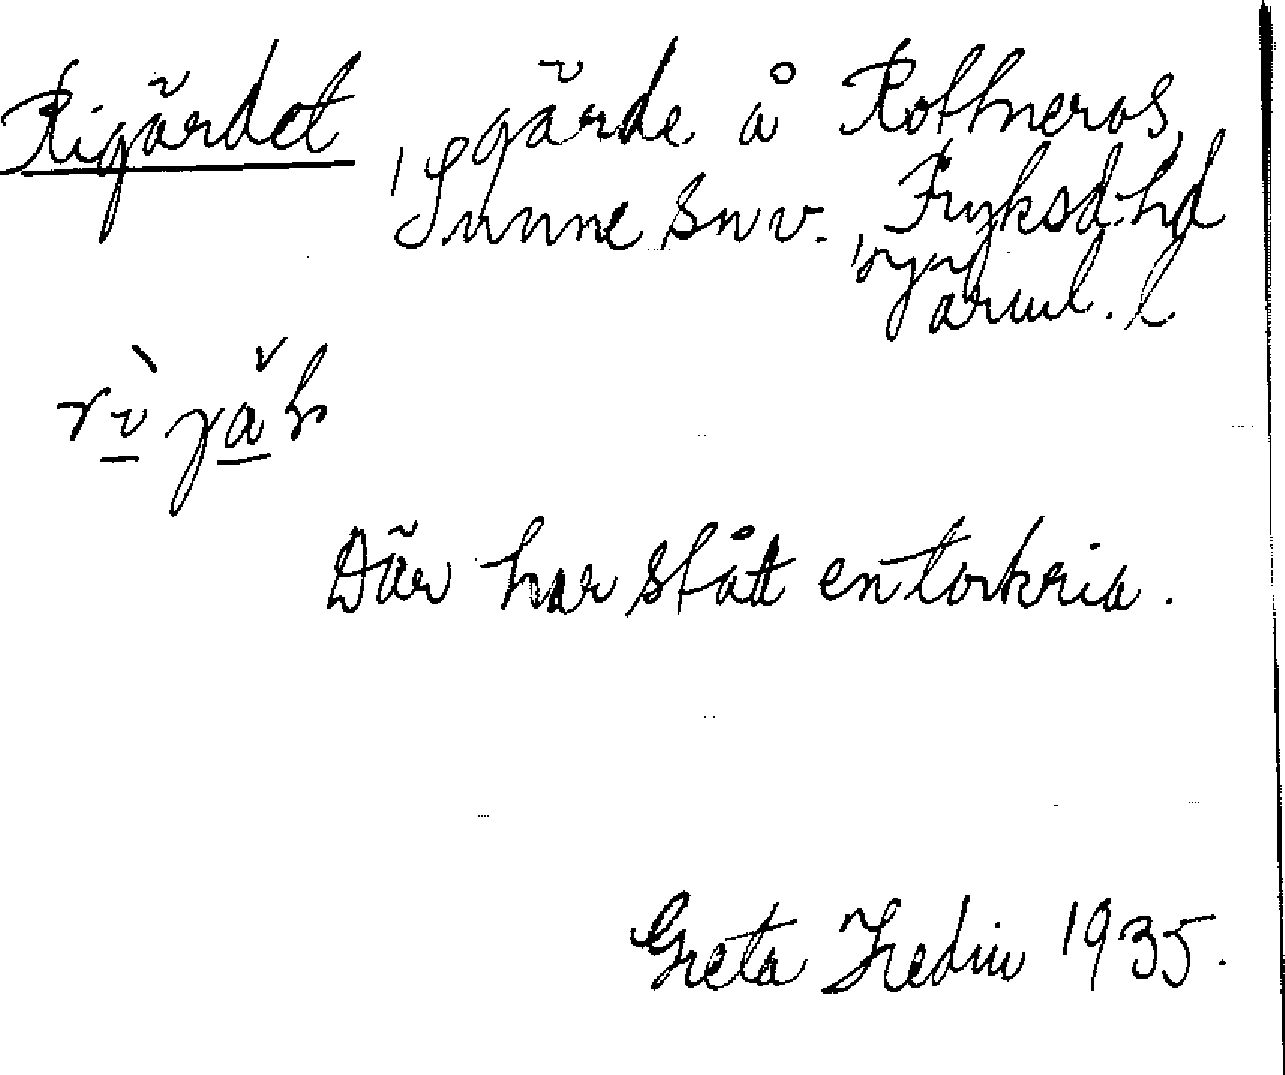 Rigärdet, gärde å Rottneros,
Sunne sn v. Fryksd. hd
Värml. l.
Där har stått en torkria.
Greta Hedin 1935.